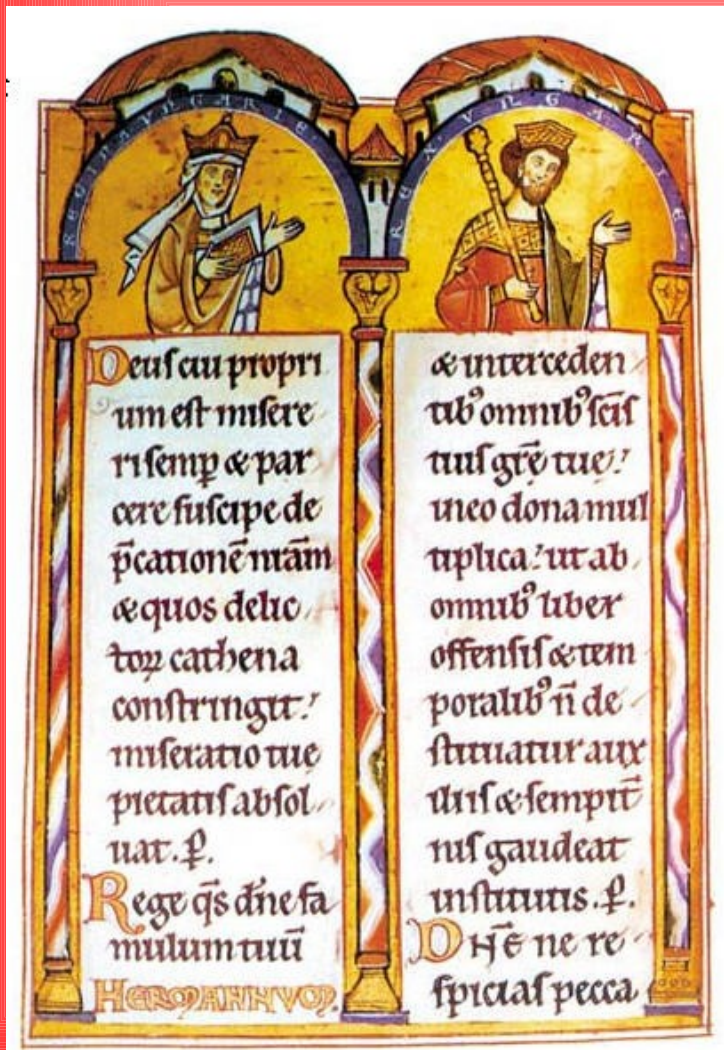 REGINA VNGARIE
REX VNGARIE
Deus cui propri
um est misere
ri semꝑ & par
cere suscipe de
p̄cationē nr̄am
& quos delic
toꝝ cathena
constringit:
miseratio tuę
pietatis absol
uat. P̄.
Rege qs̄ dn̄e fa
mulum tuū
HERMANNVM.
& interceden
tibꝰ omnibꝰ sc̄is
tuis grē tuę:
in eo dona mul
tiplica: ut ab
omnibꝰ liber
offensis & tem
poralibꝰ n̄ de
stituatur aux
iliis & sempit̄
nis gaudeat
institutis. P̄.
DN̄E ne re
spicias pecca